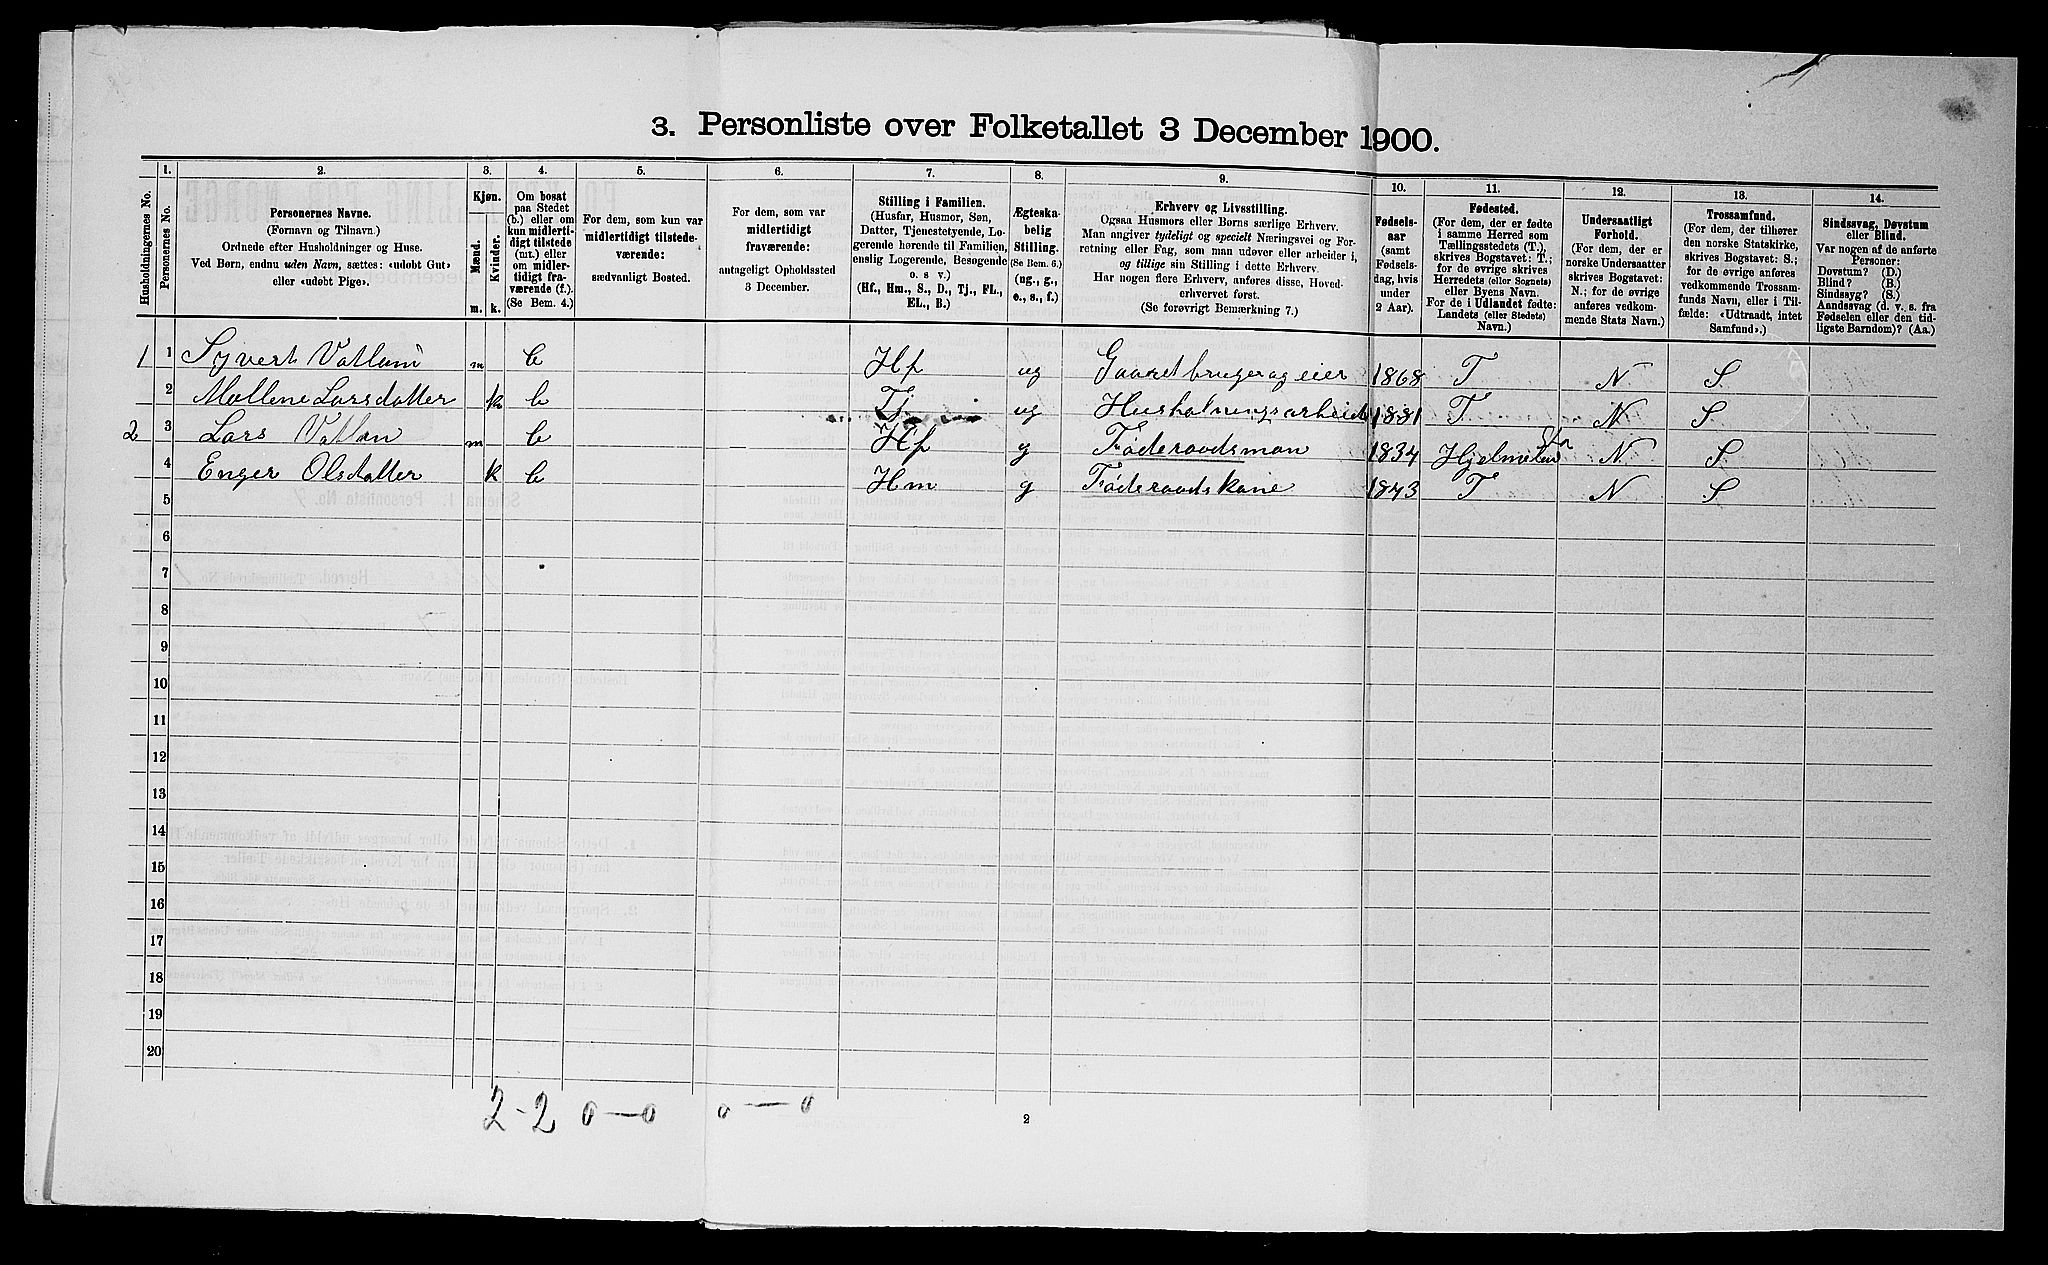 3. Personliste over Folketallet 3 December 1900.
Husholdningernes No.
1.
Personernes No.
2.
Personernes Navne.
(Fornavn og Tilnavn.)
Ordnede efter Husholdninger og Huse.
Ved Børn, endnu uden Navn, sættes: «udøbt Gut»
eller «udøbt Pige».
3.
Kjøn.
Mænd.
Kvinder.
m.
k.
4.
Om bosat
paa Stedet
(b.) eller om
kun midlerti-
digt tilstede
(mt.) eller
om midler-
tidigt fra-
værende (f.).
(Se Bem. 4.)
5.
For dem, som kun var
midlertidigt tilstede-
værende:
sædvanligt Bosted.
6.
For dem, som var
midlertidigt
fraværende:
antageligt Opholdssted
3 December.
7.
Stilling i Familien.
(Husfar, Husmor, Søn,
Datter, Tjenestetyende, Lo-
gerende hørende til Familien,
enslig Logerende, Besøgende
o. s. v.)
(Hf., Hm., S., D., Tj., FL.,
EL., B.)
8.
Ægteska-
belig
Stilling.
(Se Bem. 6.)
(ug., g.,
e., s., f.)
9.
Erhverv og Livsstilling.
Ogsaa Husmors eller Børns særlige Erhverv.
Man angiver tydeligt og specielt Næringsvei og For-
retning eller Fag, som man udøver eller arbeider i,
og tillige sin Stilling i dette Erhverv.
Har nogen flere Erhverv, anføres disse, Hoved-
erhvervet først.
(Se forøvrigt Bemærkning 7.)
10.
Fødsels-
aar
(samt
Fødsels-
dag, hvis
under
2 Aar).
11.
Fødested.
(For dem, der er fødte
i samme Herred som
Tællingsstedets (T.),
skrives Bogstavet: T.;
for de øvrige skrives
Herredets (eller Sognets)
eller Byens Navn.
For de i Udlandet fødte:
Landets (eller Stedets)
Navn.)
12.
Undersaatligt
Forhold.
(For dem, der er
norske Undersaatter
skrives Bogstavet:
N.; for de øvrige
anføres vedkom-
mende Stats Navn.)
13.
Trossamfund.
(For dem, der tilhører
den norske Statskirke,
skrives Bogstavet: S.;
for de øvrige anføres
vedkommende Trossam-
funds Navn, eller i Til-
fælde: «Udtraadt, intet
Samfund».)
14.
Sindssvag, Døvstum
eller Blind.
Var nogen af de anførte
Personer:
Døvstum? (D.)
Blind? (B.)
Sindssyg? (S.)
Aandssvag (d. v. s. fra
Fødselen eller den tid-
ligste Barndom)? (Aa.)
1 1 Syvert Vatland m b Hf ug Gaardbruger og eier 1868 T N S
2 Mallene Larsdatter k b Tj ug Husholningsarbeide 1881 T N S
2 3 Lars Vatlan m b Hf g Føderaadsman 1834 N S
4 Enger Olsdatter k b Hm g Føderaadskone 1843 T N S
5
6
7
8
9
10
11
12
13
14
15
16
17
18
19
20
2-2 0—0 0—0
2